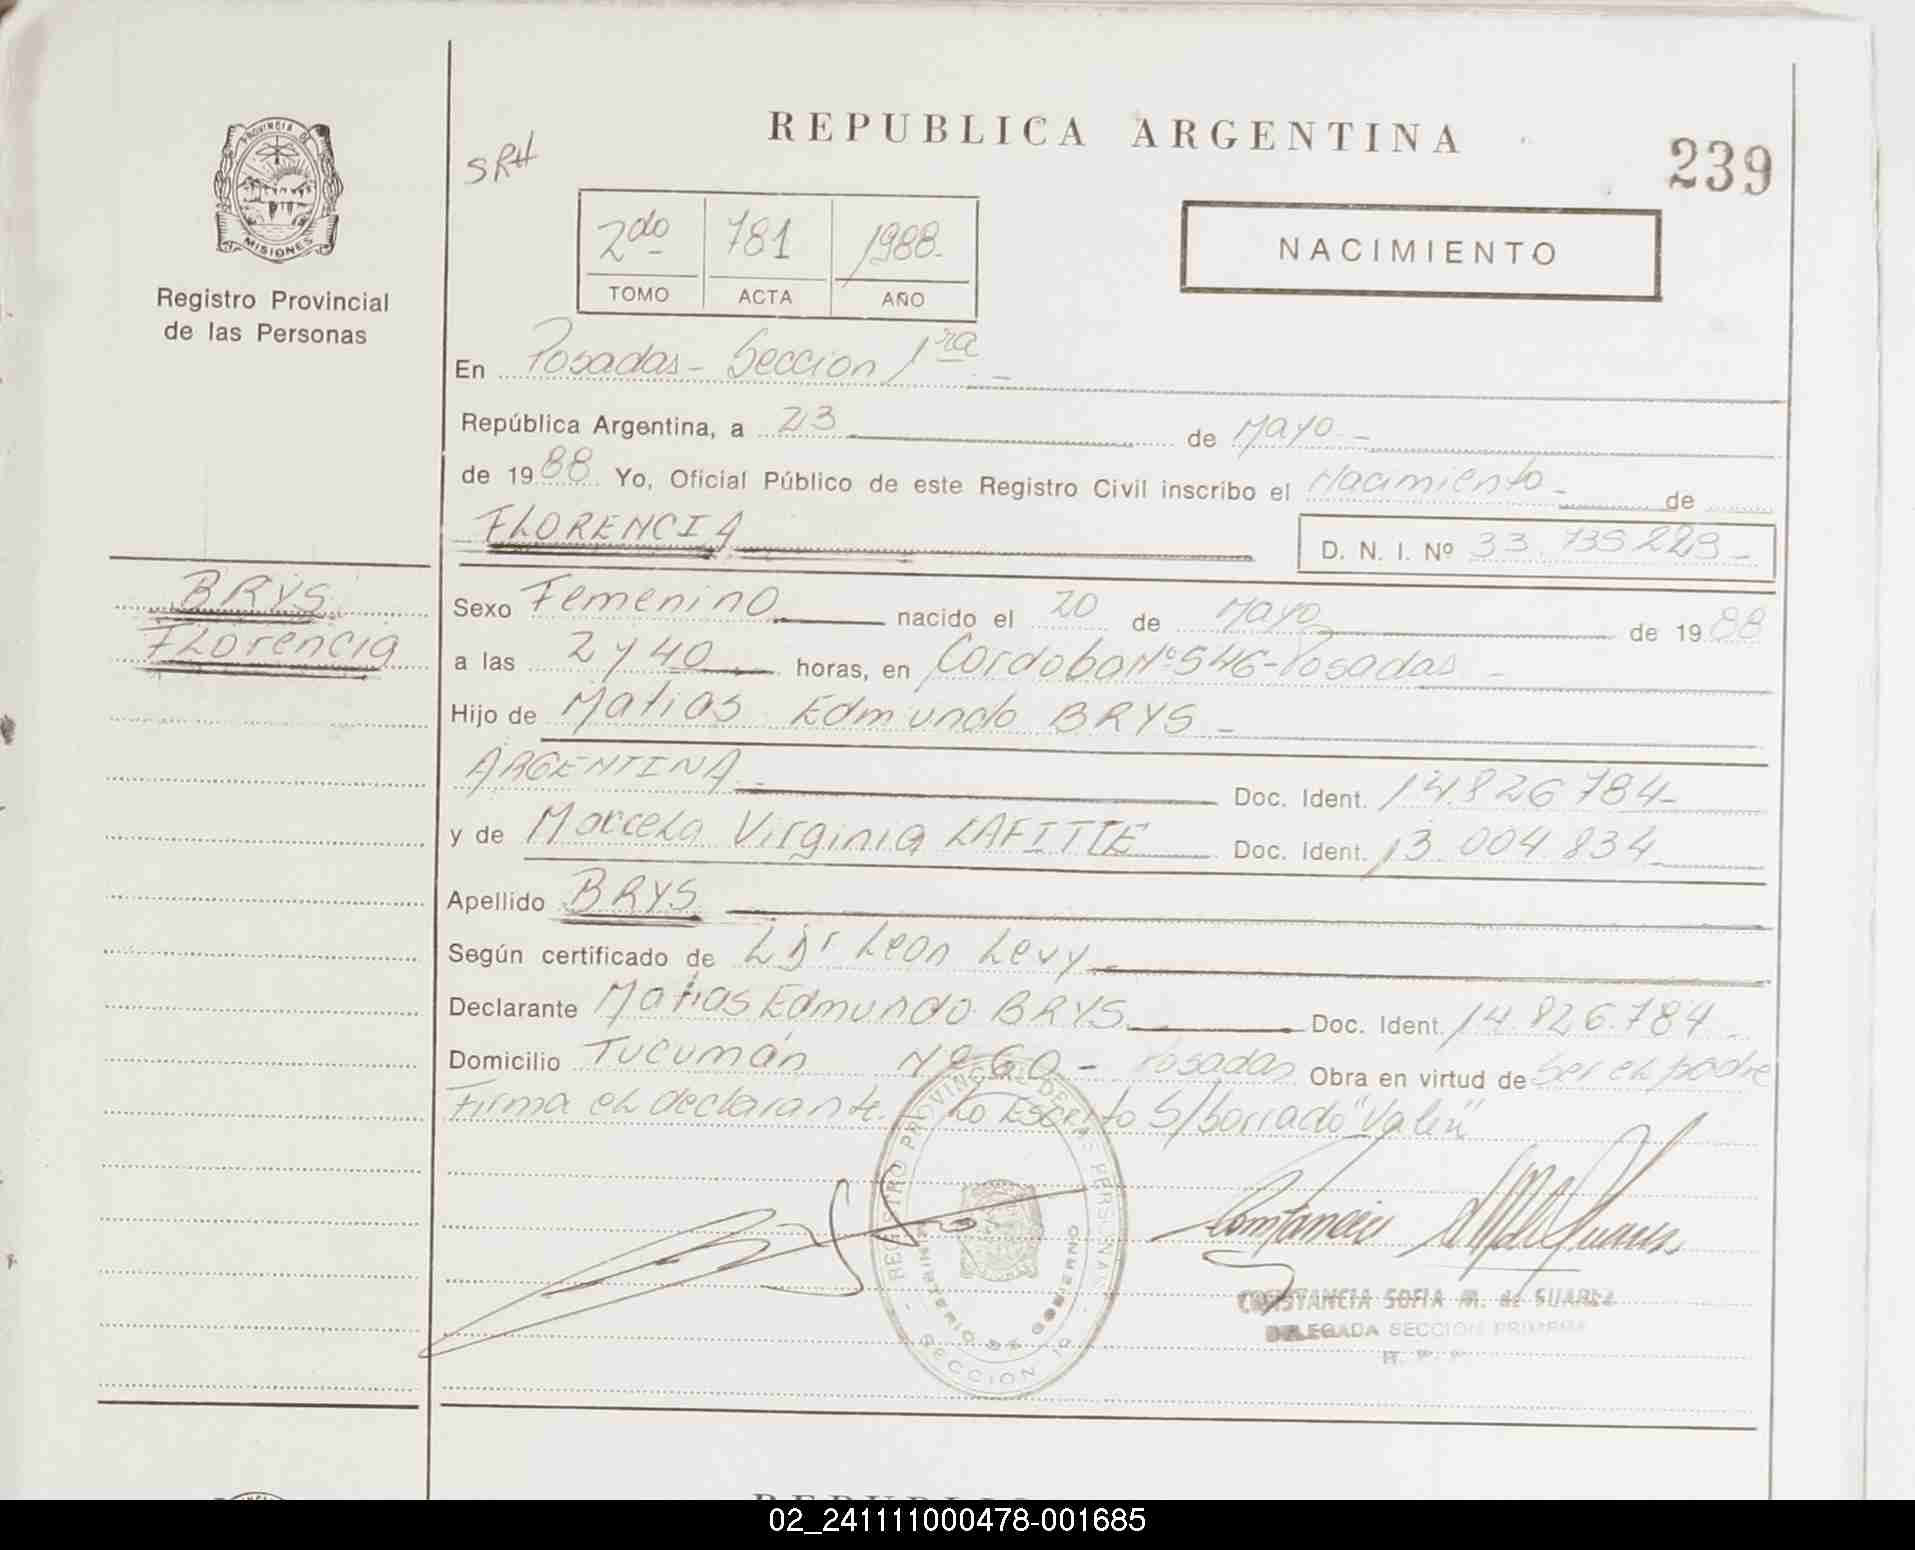 REPUBLICA ARGENTINA
239
SRH
PROVINCIA DE
MISIONES
Registro Provincial
de las Personas
2do 781 1988.
TOMO ACTA AÑO
NACIMIENTO
En Posadas - Seccion 1ra. -
República Argentina, a 23 de Mayo -
de 1988. Yo, Oficial Público de este Registro Civil inscribo el Nacimiento - de
FLORENCIA
D. N. I. Nº 33.735.229 -
BRYS
Florencia
Sexo Femenino nacido el 20 de Mayo de 1988
a las 2 y 40 horas, en Cordoba Nº 546 - Posadas -
Hijo de Matias Edmundo BRYS -
ARGENTINA - Doc. Ident. 14.826.784 -
y de Marcela Virginia LAFITTE Doc. Ident. 13.004.834
Apellido BRYS
Según certificado de L Dr Leon Levy
Declarante Matias Edmundo BRYS Doc. Ident. 14.826.784 -
Domicilio Tucumán - Posadas Obra en virtud de Ser el padre
Firma el declarante. - Lo Escrito S/borrado "Vale"
REGISTRO PROVINCIAL DE LAS PERSONAS
MINISTERIO DE GOBIERNO
SECCION 1a
CONSTANCIA SOFIA M. de SUAREZ
DELEGADA SECCION PRIMERA
R. P. P.
02_241111000478-001685